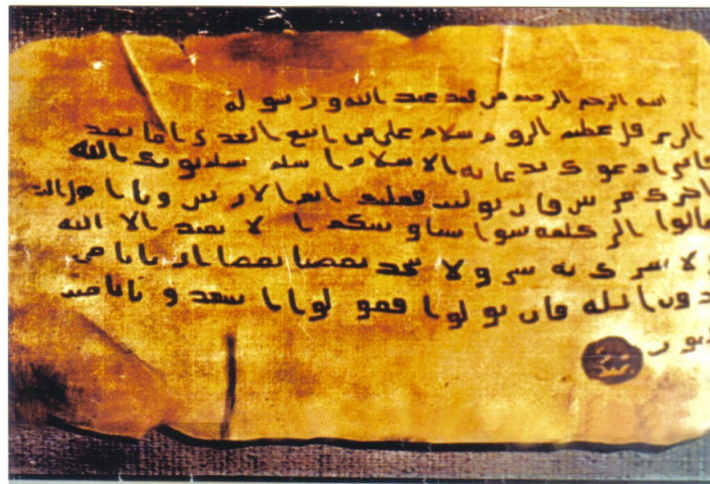 الله الرحمن الرحيم من محمد عبد الله ورسوله
الى هرقل عظيم الروم سلام على من اتبع الهدى اما بعد
فانى ادعوك بدعاية الاسلام اسلم تسلم يوتك الله
اجرك مرتين فان توليت فعليك اثم الاريسين ويا اهل
تعالوا الى كلمة سوا بيننا وبينكم ا لا نعبد الا الله
و لا نشرك به ولا يتخذ بعضنا بعضا اربابا من
دون الله فان تولوا فقولوا اشهدوا بانا